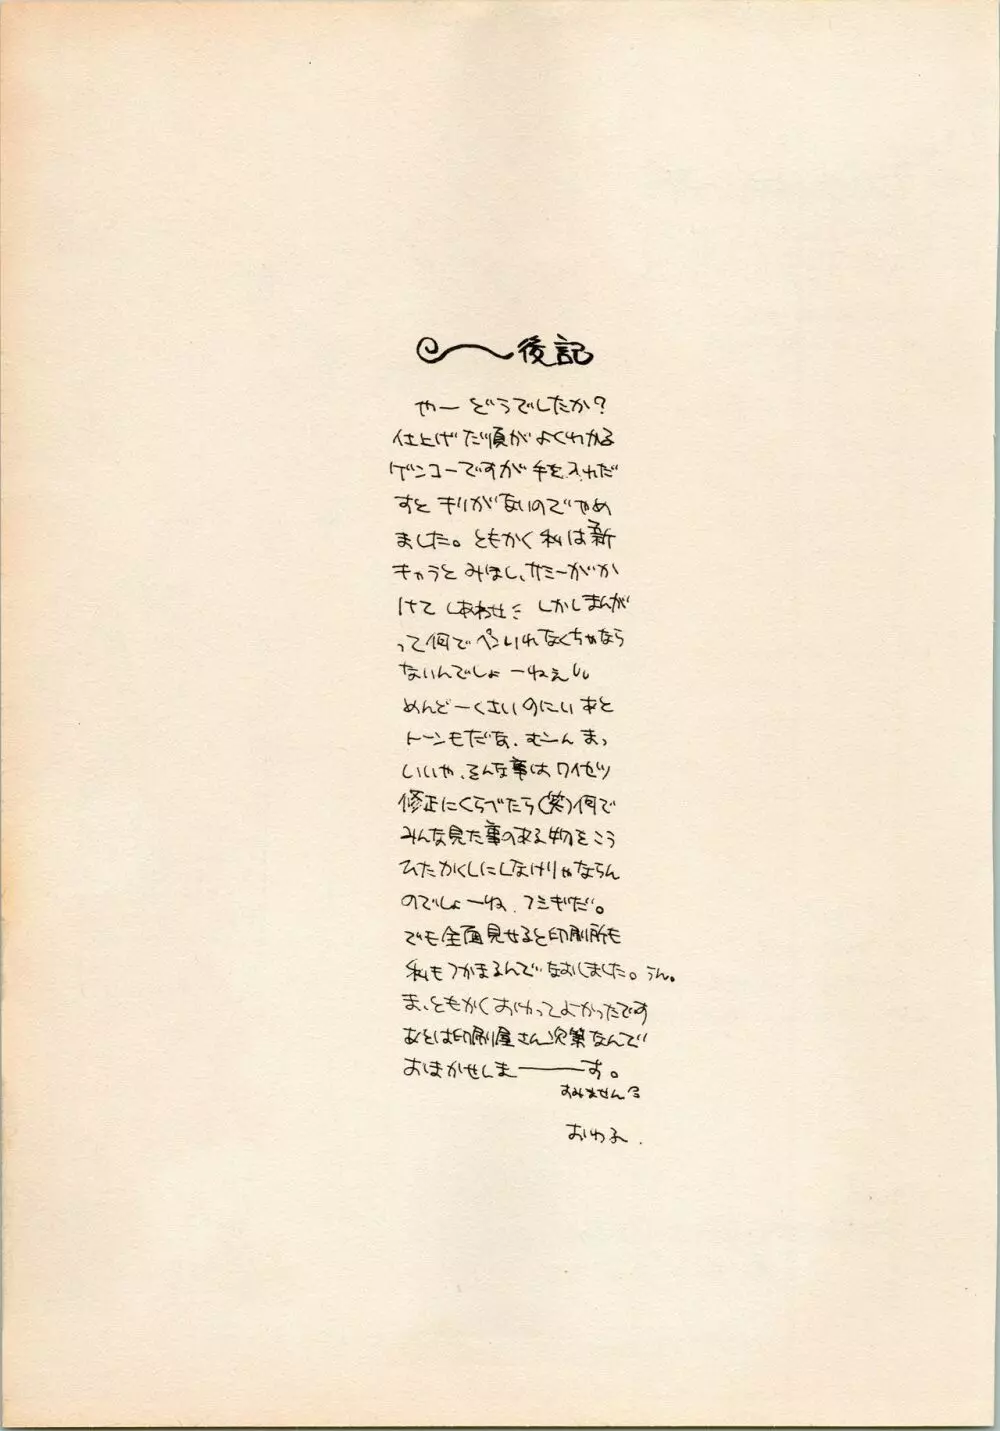 後記
やー どうでしたか?
仕上げた順がよくわかる
ゲンコーですが手を入れだ
すと キリがないのでやめ
ました。ともかく私は新
キャラと みほし、サミーがか
けて しあわせ しかしまんが
って何でペンいれなくちゃなら
ないんでしょーねぇ
めんどーくさいのにい あと
トーンもだな、むーん まっ
いいや、そんな事はワイセツ
修正にくらべたら(笑)何で
みんな見た事のある物をこう
ひたかくしにしなけりゃならん
のでしょーね、フシギだ。
でも全面見せると印刷所も
私もつかまるんでなおしました。うん。
ま、ともかくおわってよかったです
あとは印刷屋さん次第なんで
おまかせしま―――す。
すみません
おわる.